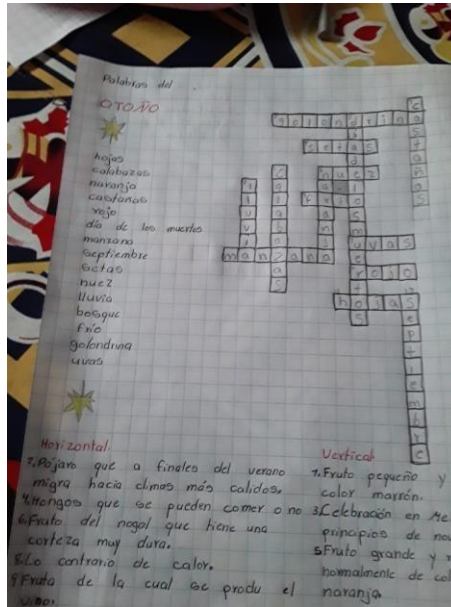 Palabras del
OTOÑO
hojas
calabazas
naranja
castañas
rojo
día de los muertos
manzana
septiembre
setas
nuez
lluvia
bosque
frío
golondrina
uvas
golondrina
castañas
setas
nuez
calabazas
lluvia
frío
uvas
manzana
rojo
hojas
septiembre
Horizontal
Vertical
2. Pájaro que a finales del verano
migra hacia climas más calidos.
4. Hongos que se pueden comer o no
6. Fruto del nogal que tiene una
corteza muy dura.
8. Lo contrario de calor.
9 Fruta de la cual se produ el
vino.
1. Fruto pequeño y
color marrón.
3. Celebración en Me
principios de nov
5 Fruto grande y r
normalmente de col
naranja.